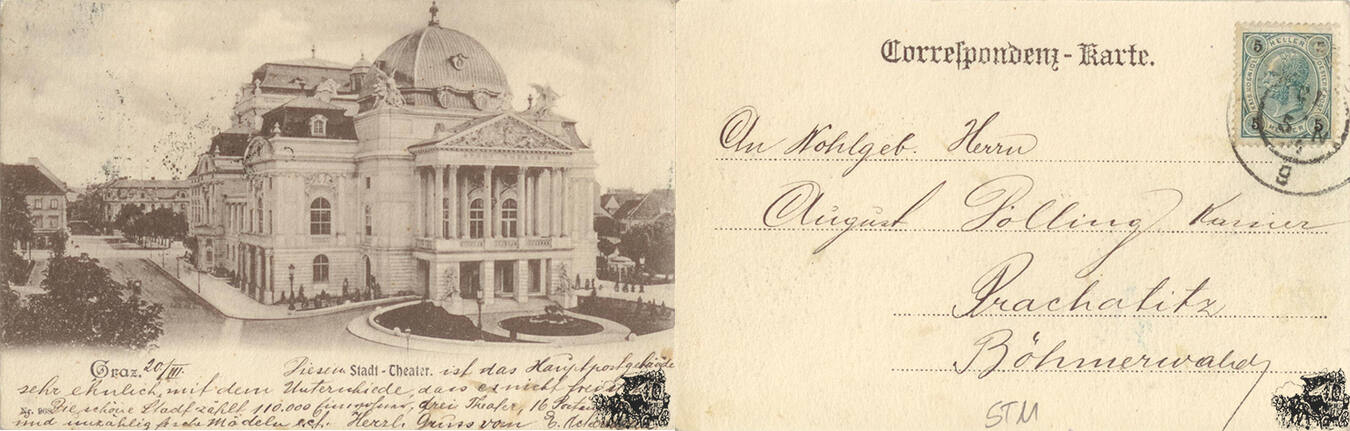 Graz. 20/III. Diesem Stadt-Theater. ist das Hauptpostgebäude
sehr ehnlich, mit dem Unterschiede, dass es nicht frei
Die schöne Stadt zählt 110.000 Einwohner, drei Theater, 16
und unzählig fesche Mädeln ect. Herzl. Gruss von E.
Correspondenz-Karte.
5 HELLER 5
5 5
An Wohlgeb. Herrn
August Pölling
Prachatitz
Böhmerwald
STM